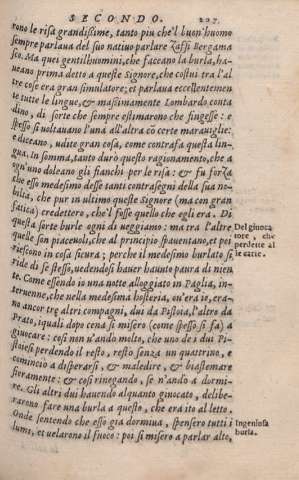 SECONDO. 207
rono le risa grandissime, tanto piu che'l buon huomo
sempre parlaua del suo natiuo parlare Zaffi bergama
sco. Ma quei gentilhuomini, che faceano la burla, ha-
ueano prima detto a queste Signore, che costui tra l'al
tre cose era gran simulatore; et parlaua eccellentemen
te tutte le lingue, & massimamente Lombardo conta
dino, di sorte che sempre estimarono che fingesse: e
spesso si voltauano l'una all'altra cō certe marauiglie:
e diceano, udite gran cosa, come contrafa questa lin-
gua. In somma, tanto durò questo ragionamento, che a
ogn'uno doleano gli fianchi per le risa: & fu forza
che esso medesimo desse tanti contrasegni della sua no-
biltà, che pur in ultimo queste Signore (ma con gran
fatica) credettero, ch'l fosse quello che egli era. Di
questa sorte burle ogni dì veggiamo: ma tra l'altre
quelle son piaceuoli, che al principio spauentano, et poi
riescono in cosa sicura; perche il medesimo burlato si
ride di se stesso, uedendosi hauer hauuto paura di nien
te. Come essendo io una notte alloggiato in Paglia, in-
teruenne, che nella medesima hosteria, ou'era io, era-
no ancor tre altri compagni, dui da Pistoia, l'altro da
Prato, iquali dopo cena si misero (come spesso si fa) a
giuocare: così non u'andò molto, che uno de i dui Pi-
stoiesi perdendo il resto, restò senza un quattrino, e
cominciò a disperarsi, & maledire, & biastemare
fieramente: & così rinegando, se n'andò a dormi-
re. Gli altri dui hauendo alquanto giuocato, delibe-
rarono fare una burla a questo, che era ito al letto.
Onde sentendo che esso già dormiua, spensero tutti i
lumi, et uelarono il fuoco: poi si misero a parlar alto,
Del giuoca
tore, che
perdette al
le carte.
Ingeniosa
burla.